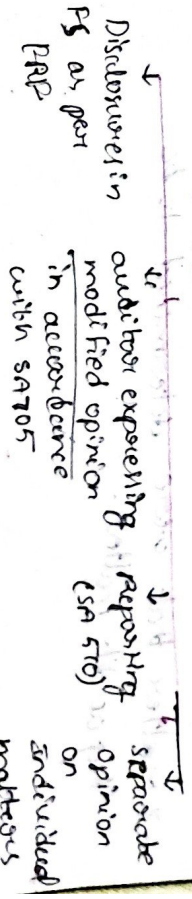 Disclosures in
FS as per
FRF
auditor expressing
modified opinion
in accordance
with SA705
Reporting
(SA 570)
separate
opinion
on
individual
matters